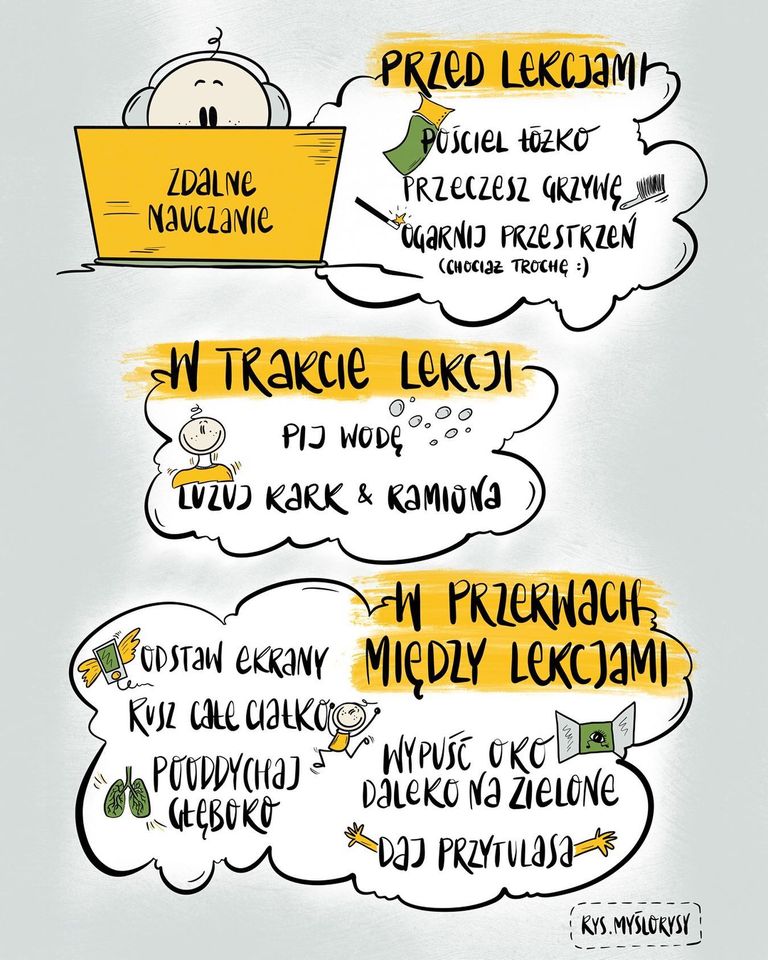 ZDALNE
NAUCZANIE
PRZED LEKCJAMI
POŚCIEL ŁÓŻKO
PRZECZESZ GRZYWĘ
OGARNIJ PRZESTRZEŃ
(CHOCIAŻ TROCHĘ :)
W TRAKCIE LEKCJI
PIJ WODĘ
LUZUJ KARK & RAMIONA
W PRZERWACH
MIĘDZY LEKCJAMI
ODSTAW EKRANY
RUSZ CAŁE CIAŁKO
POODDYCHAJ
GŁĘBOKO
WYPUŚĆ OKO
DALEKO NA ZIELONE
DAJ PRZYTULASA
RYS. MYŚLORYSY